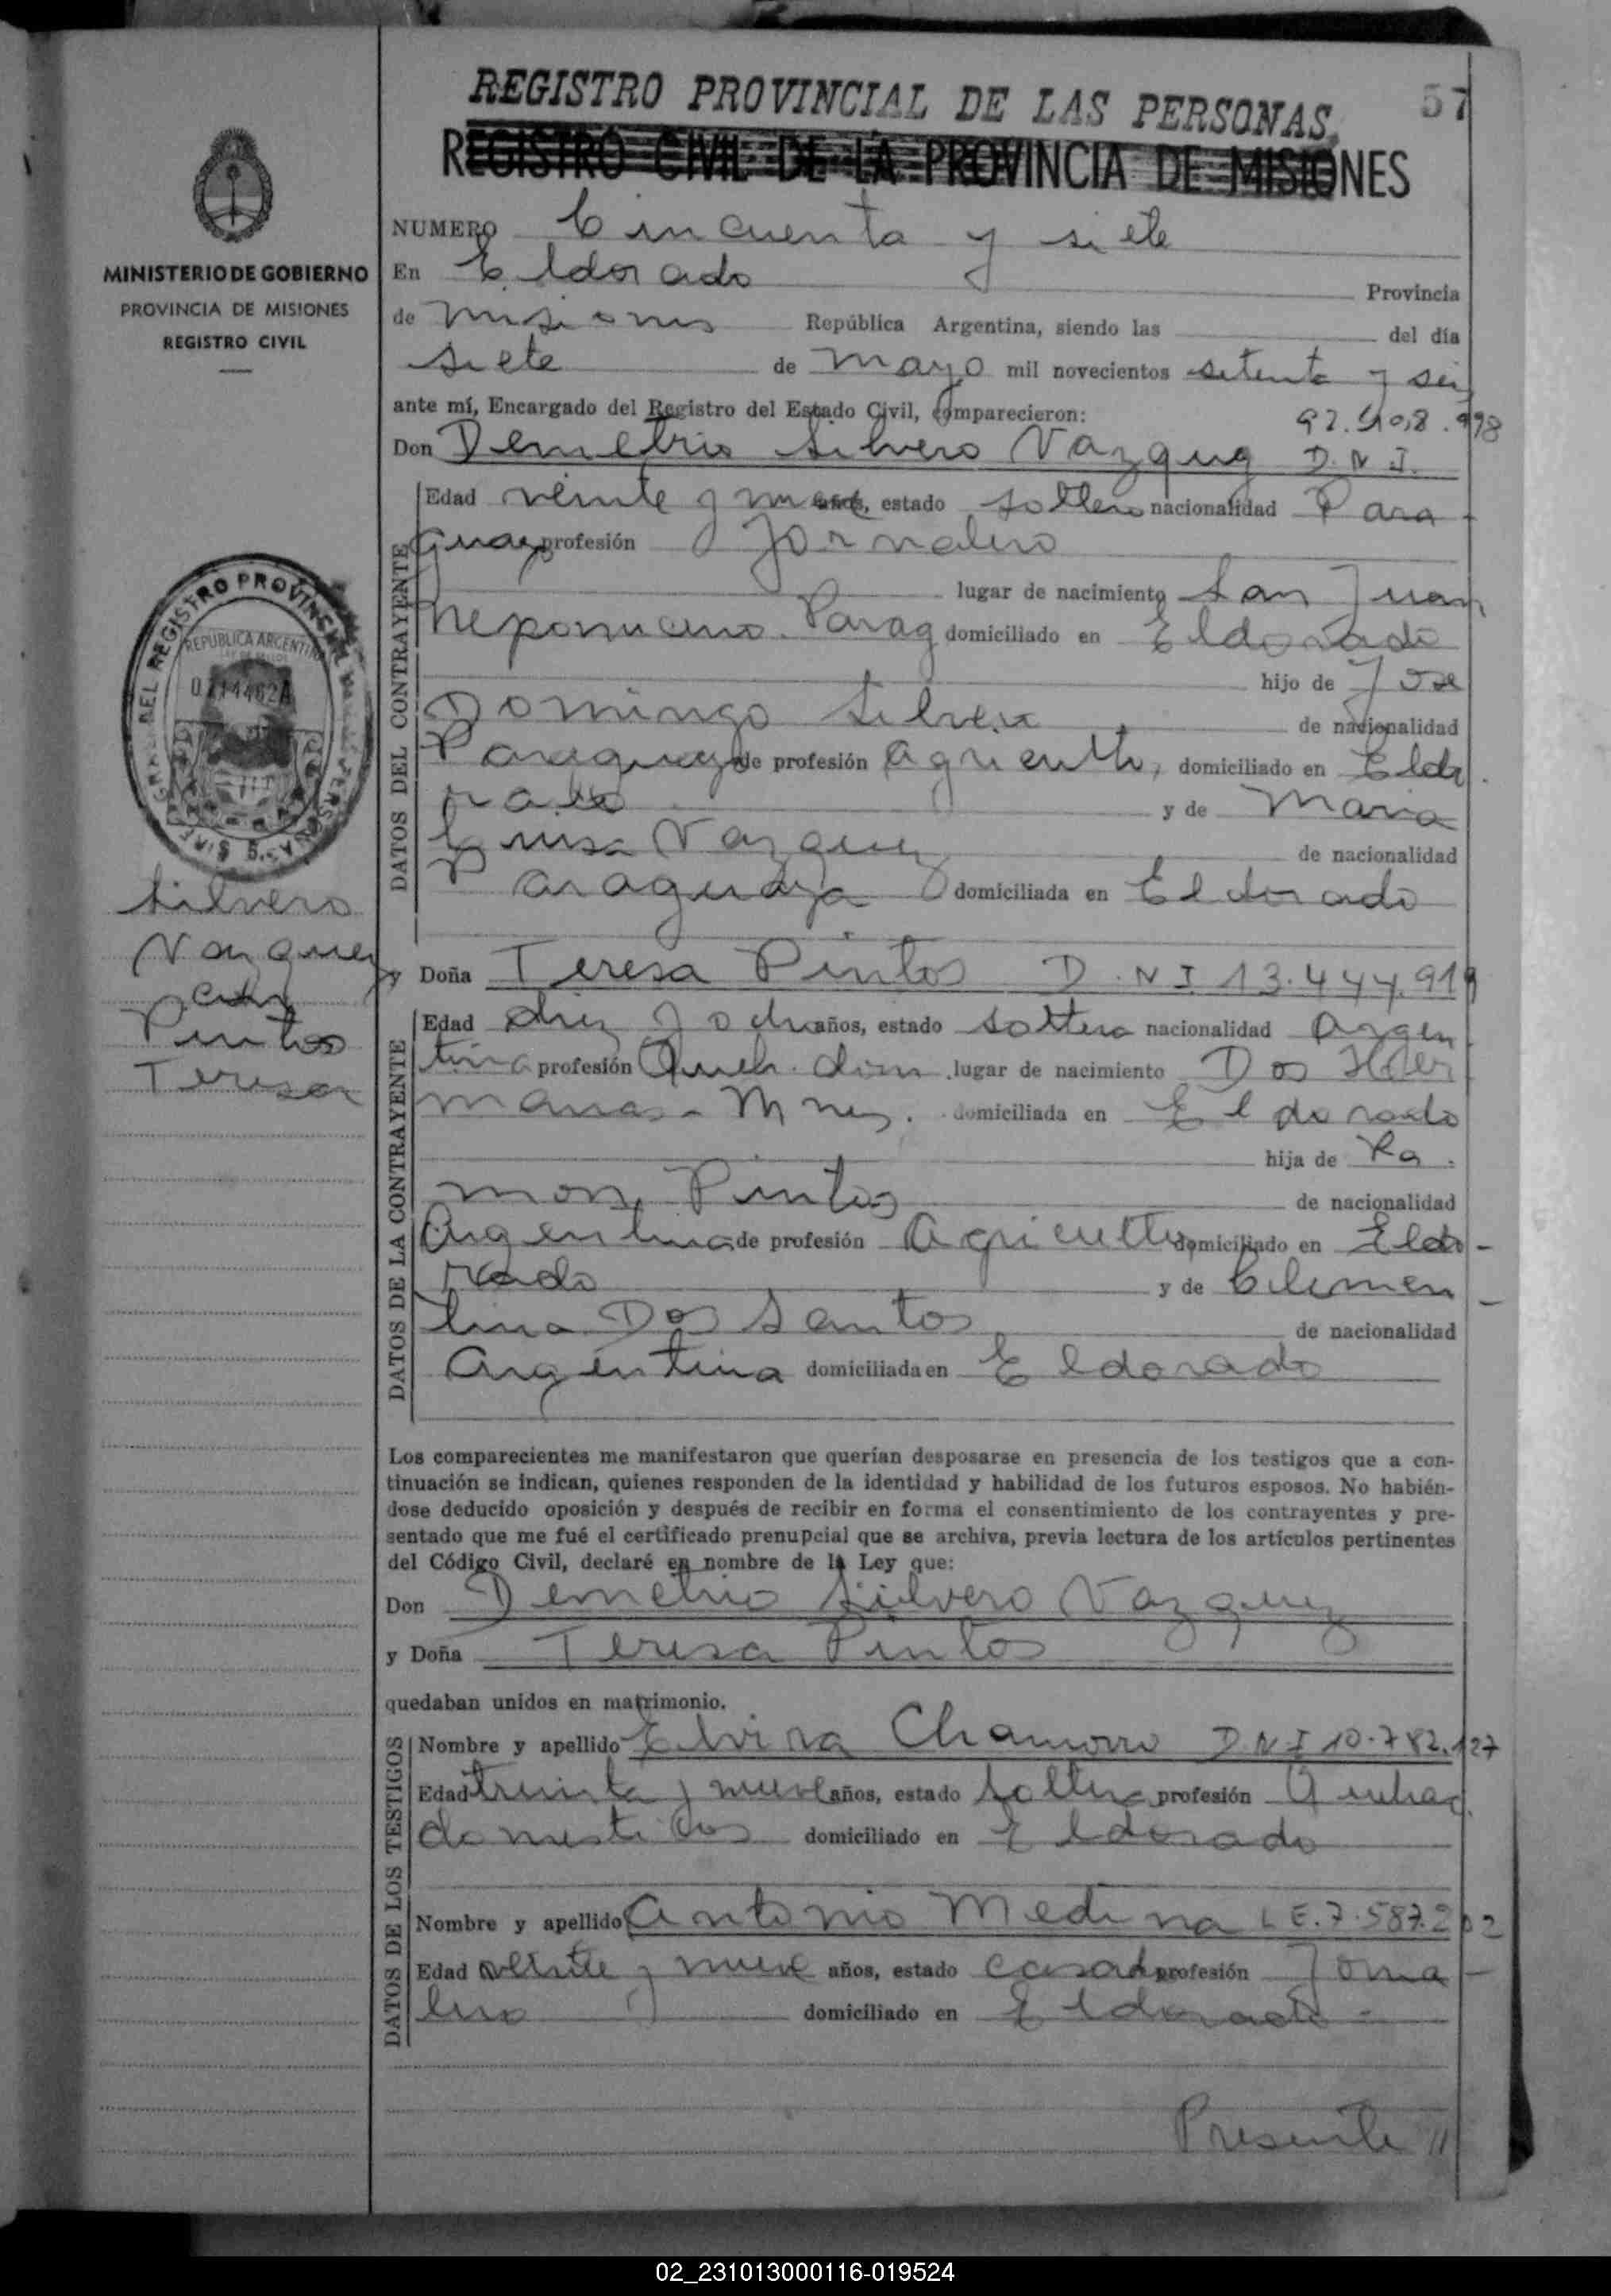 REGISTRO PROVINCIAL DE LAS PERSONAS
57
REGISTRO CIVIL DE LA PROVINCIA DE MISIONES
MINISTERIO DE GOBIERNO
PROVINCIA DE MISIONES
REGISTRO CIVIL
NUMERO Cincuenta y siete
En Eldorado Provincia
de Misiones República Argentina, siendo las del día
siete de mayo mil novecientos setenta y seis
ante mí, Encargado del Registro del Estado Civil, comparecieron:
Don Demetrio Silvero Vazquez D.N.I.
Edad veinte y años, estado soltero nacionalidad Para
guay profesión Jornalero
lugar de nacimiento San Juan
Nepomuceno. Parag domiciliado en Eldorado
hijo de Jose
Domingo Silvero de nacionalidad
Paraguayo de profesión agricultor, domiciliado en Eldo
rado y de Maria
Luisa Vazquez de nacionalidad
Paraguaya domiciliada en Eldorado
y Doña Teresa Pintos D.N.I 13.444.919
Edad diez y ocho años, estado soltera nacionalidad Argen
tina profesión Queh. dom. lugar de nacimiento Dos Her
manas - Mnes. domiciliada en Eldorado
hija de Ra
mon Pintos de nacionalidad
Argentina de profesión Agricultor domiciliado en Eldo-
rado y de Clemen
tina Dos Santos de nacionalidad
Argentina domiciliada en Eldorado
DATOS DEL CONTRAYENTE
DATOS DE LA CONTRAYENTE
GRAL. DEL REGISTRO PROVINCIAL DE LAS PERSONAS
REPUBLICA ARGENTINA
Silvero
Vazquez
con
Pintos
Teresa
Los comparecientes me manifestaron que querían desposarse en presencia de los testigos que a con-
tinuación se indican, quienes responden de la identidad y habilidad de los futuros esposos. No habién-
dose deducido oposición y después de recibir en forma el consentimiento de los contrayentes y pre-
sentado que me fué el certificado prenupcial que se archiva, previa lectura de los artículos pertinentes
del Código Civil, declaré en nombre de la Ley que:
Don Demetrio Silvero Vazquez
y Doña Teresa Pintos
quedaban unidos en matrimonio.
DATOS DE LOS TESTIGOS
Nombre y apellido Elvira Chamorro D.N.I 10.782.127
Edad treinta y nueve años, estado soltera profesión Quehac.
domesticos domiciliado en Eldorado
Nombre y apellido Antonio Medina L.E.7.587.202
Edad veinte y nueve años, estado casado profesión Jorna-
lero domiciliado en Eldorado -
Presente //
02_231013000116-019524